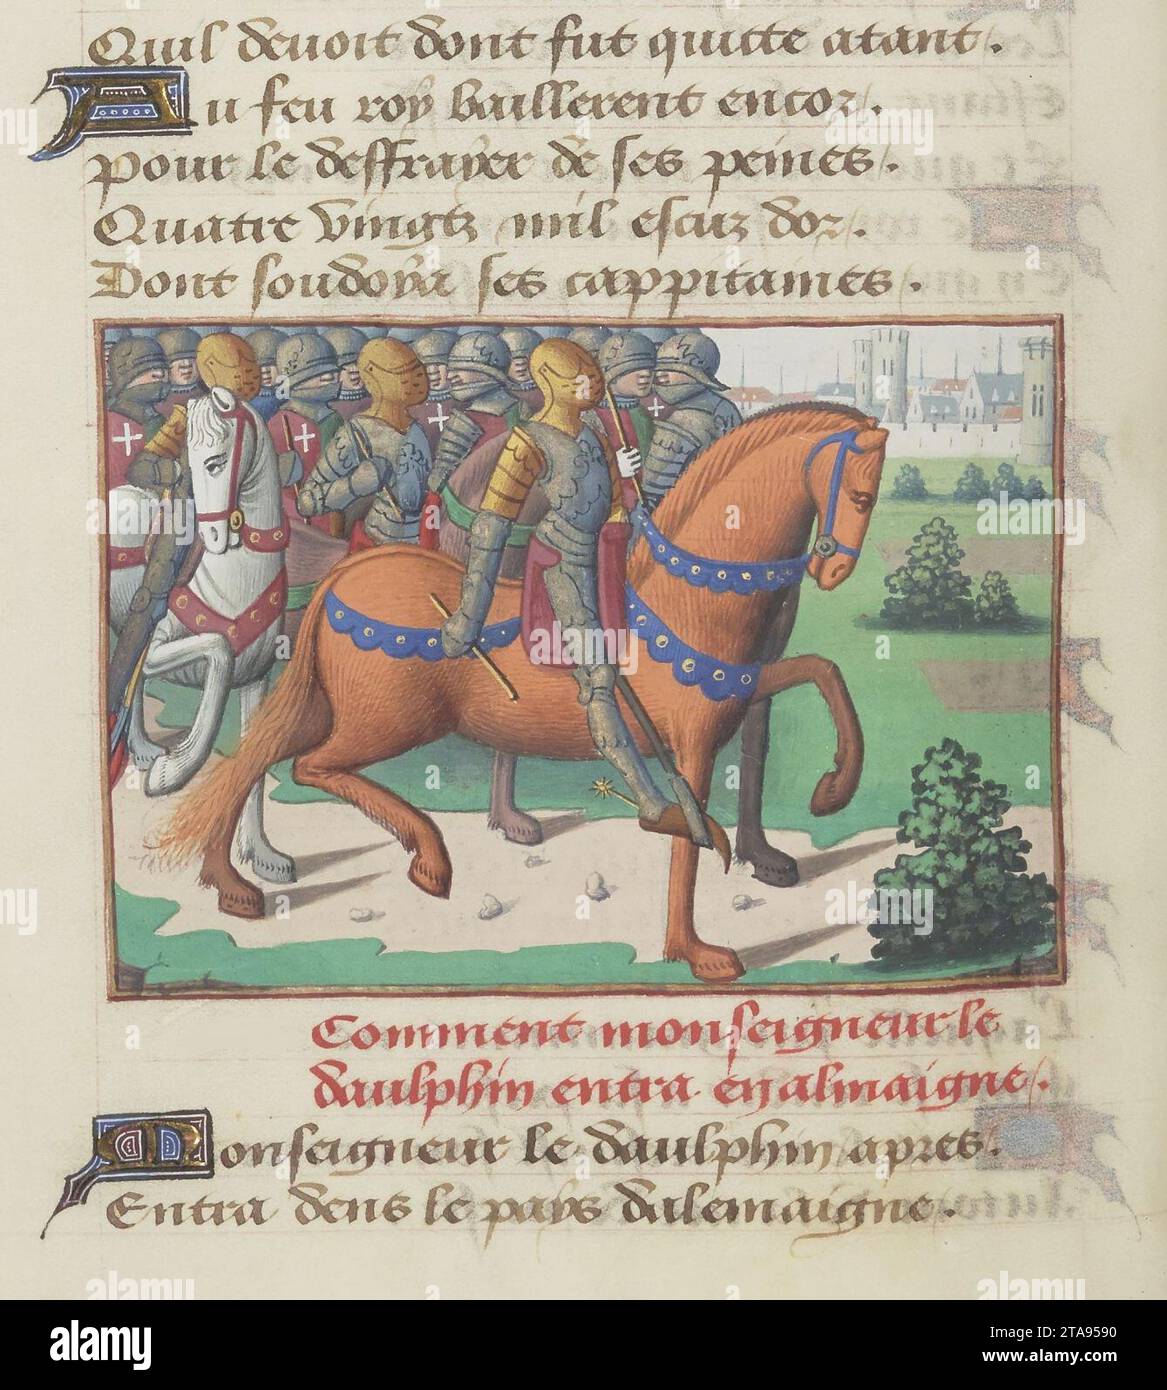 Quil devoit dont fut quitte atant.
Au feu roy baillerent encor.
pour le deffrayer de ses peines.
Quatre vingtz mil escuz dor.
Dont soudoya ses cappitaines.
Comment monseigneur le
daulphin entra en almaigne.
Monseigneur le daulphin apres.
Entra dens le pays dalemaigne.
alamy
Image ID: 2TA9590
www.alamy.com